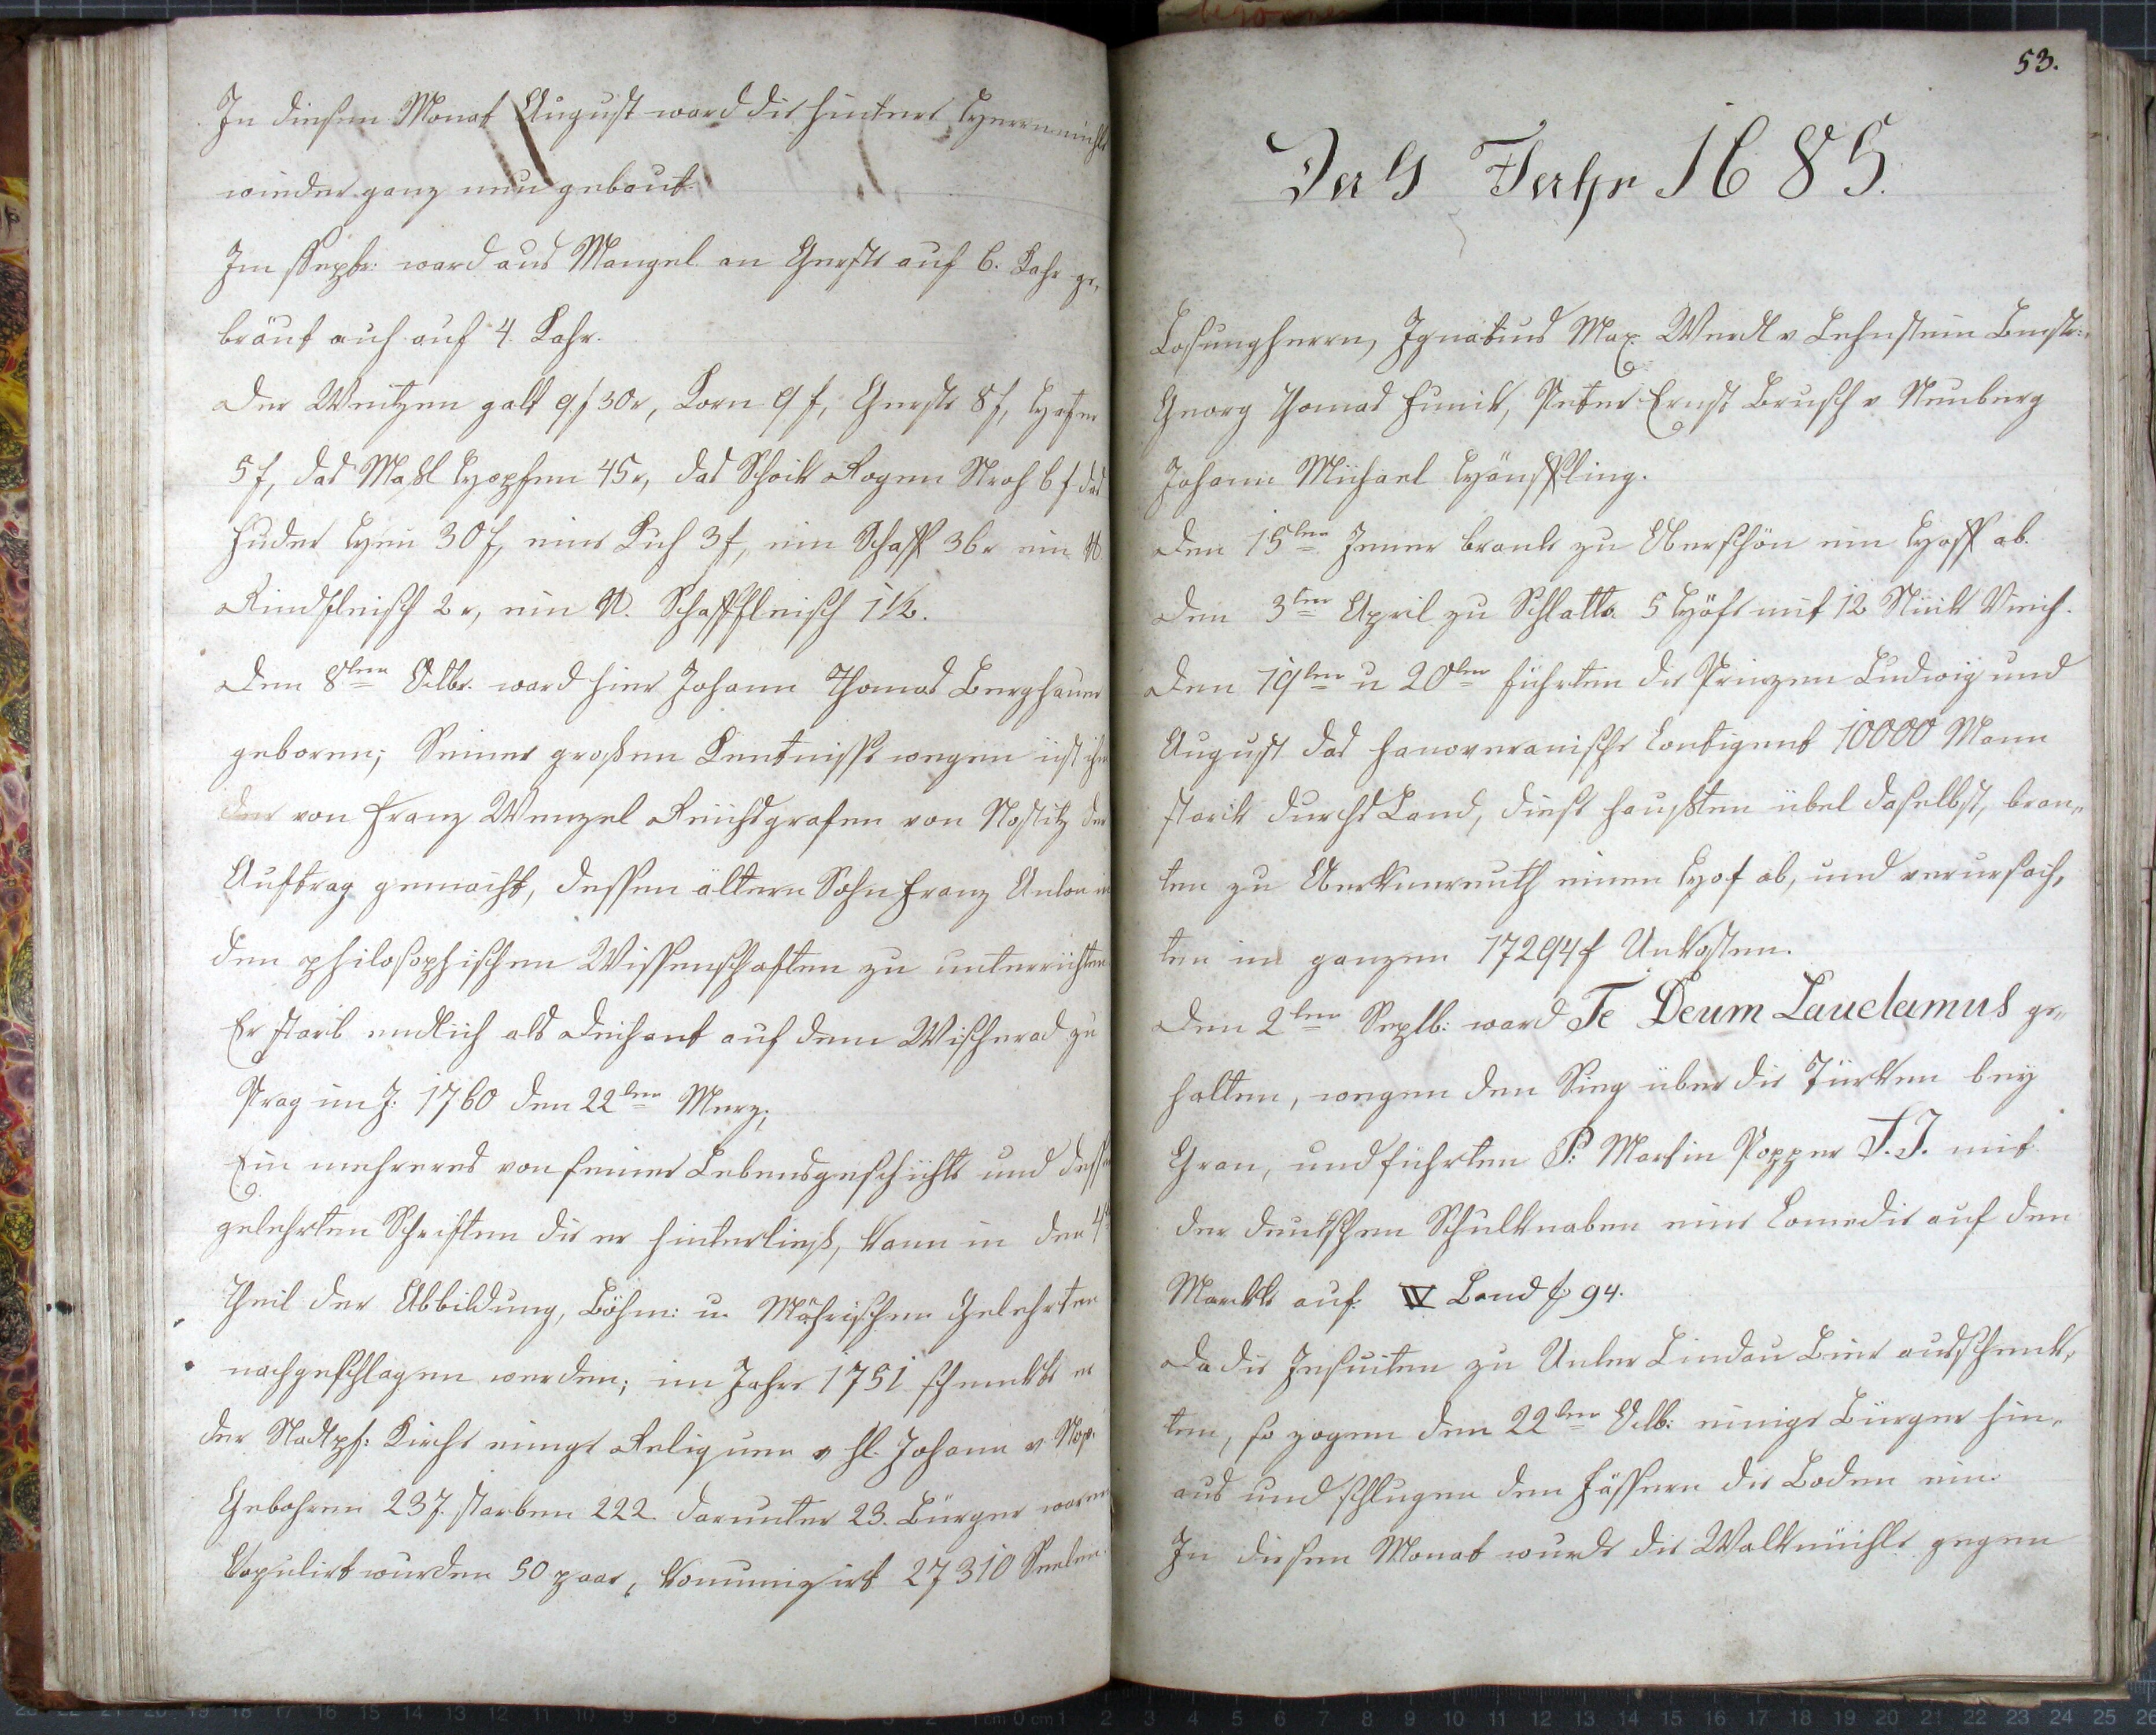 In diesen Monat August ward die hintere Herrnmühle
wieder ganz neu gebaut.
Im Septr: ward aus Mangel an Gerste auf 6. Kahr ge„
bräut auch auf 4. Kahr.
Der Weitzen galt 9f 30x, Korn 9f, Gerste 8f, Hafer
5f, das Maßl Hopfen 45x, das Schock Rogen Stroh 6f das
Fuder Heu 30f, eine Kuh 3f, ein Schaff 36x ein ℔
Rindfleisch 2x, ein ℔. Schaffleisch 1½.
Den 8ten Octbr. ward hier Johann Thomas Berghauer
geboren; Seiner großen Kentnisse wegen ist ihm
der von Franz Wenzel Reichsgrafen von Nostitz der
Auftrag gemacht, dessen ältern Sohn Franz Anton in
den philosophischen Wissenschaften zu unterrichten
Er starb endlich als Dechant auf dem Wischerad zu
Prag im J: 1760 den 22ten Merz;
Ein mehreres von seiner Lebensgeschichte und dessen
gelehrten Schriften die er hinterließ, kann in den 4t
Theil der Abbildung, Böhm: u. Mährischen Gelehrten
nachgeschlagen werden; im Jahre 1751 schenckte er
der Stadtpf: Kirche einige Reliquien v hl. Johann v Nep.
Gebohren 237. starben 222. darunter 23. Bürger waren
Kopulirt wurden 50 paar, komunizirt 27310 Seelen.
53.
Das Jahr 1685.
Losungherrn, Ignatius Max. Werdl v Lehnstein Bmstr:
Georg Thomas Funck, Peter Ernst Brusch v Neuberg
Johann Michael Hönssling.
Den 15ten Jener brante zu Oberschön ein Hoff ab.
Den 3ten April zu Schlatta 5 Höfe mit 12 Stück Viech.
Den 19ten u 20ten führten die Prinzen Ludwig und
August das hanoveranische Contigent 10000 Mann
starck durchs Land, diese haußten übel daselbst, bran„
ten zu Oberkunreuth einen Hof ab, und verursach„
ten im ganzen 17294f Unkosten.
Den 2ten Septb: ward Te Deum Laudamus ge„
halten, wegen den Sieg über die Türken bey
Gran, und führten P: Martin Popper S.J. mit
der deutschen Schulknaben eine Comedie auf den
Markte auf. IV Band f: 94.
Da die Jesuiten zu Unter Lindau Bier ausschenk„
ten, so zogen den 22ten Octb: einige Bürger hin„
aus und schlugen den Fässern die Boden ein.
In diesem Monat wurde die Walkmühle gegen